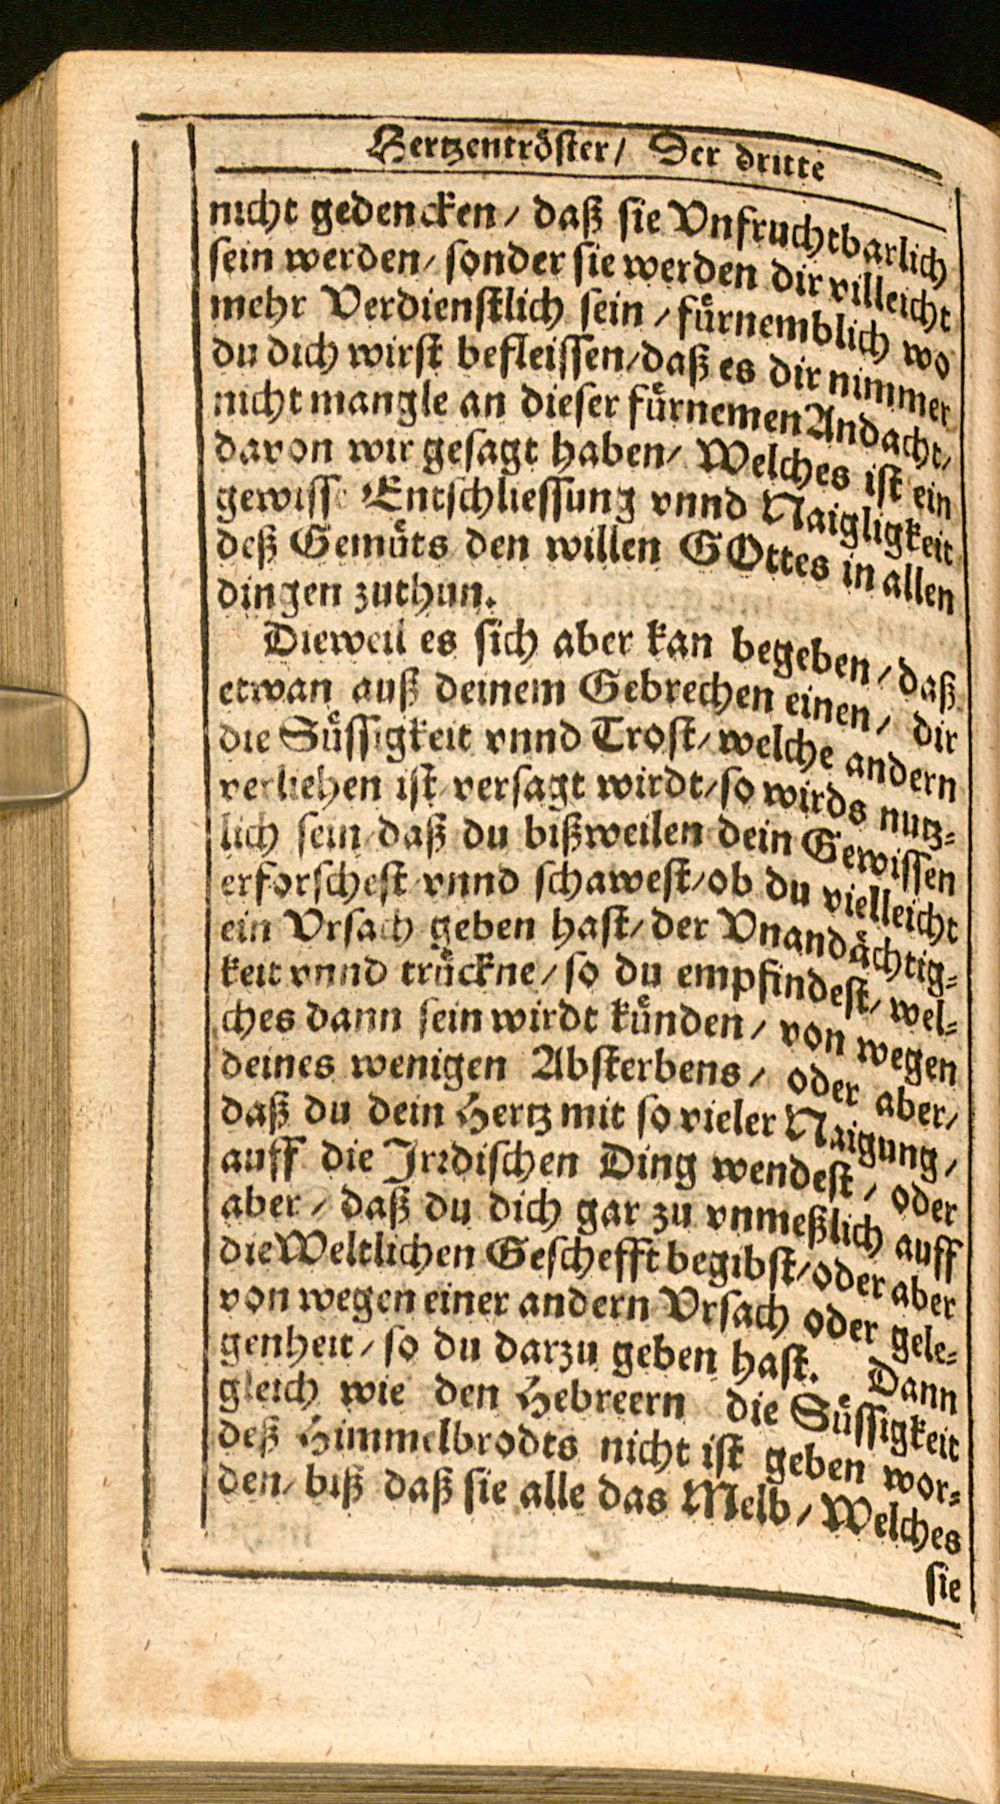 Hertzentröster / Der dritte
nicht gedencken / daß sie Vnfruchtbarlich
sein werden / sonder sie werden dir villeicht
mehr Verdienstlich sein / fürnemblich wo
du dich wirst befleissen / daß es dir nimmer
nicht mangle an dieser fürnemen Andacht /
davon wir gesagt haben / Welches ist ein
gewisse Entschliessung vnnd Naigligkeit
deß Gemüts den willen GOttes in allen
dingen zuthun.
Dieweil es sich aber kan begeben / daß
etwan auß deinem Gebrechen einen / dir
die Süssigkeit vnnd Trost / welche andern
verliehen ist versagt wirdt / so wirds nutz-
lich sein daß du bißweilen dein Gewissen
erforschest vnnd schawest / ob du vielleicht
ein Vrsach geben hast / der Vnandächtig-
keit vnnd trückne / so du empfindest / wel-
ches dann sein wirdt künden / von wegen
deines wenigen Absterbens / oder aber /
daß du dein Hertz mit so vieler Naigung /
auff die Irrdischen Ding wendest / oder
aber / daß du dich gar zu vnmeßlich auff
die Weltlichen Geschefft begibst / oder aber
von wegen einer andern Vrsach oder gele-
genheit / so du darzu geben hast. Dann
gleich wie den Hebreern die Süssigkeit
deß Himmelbrodts nicht ist geben wor-
den / biß daß sie alle das Melb / Welches
sie